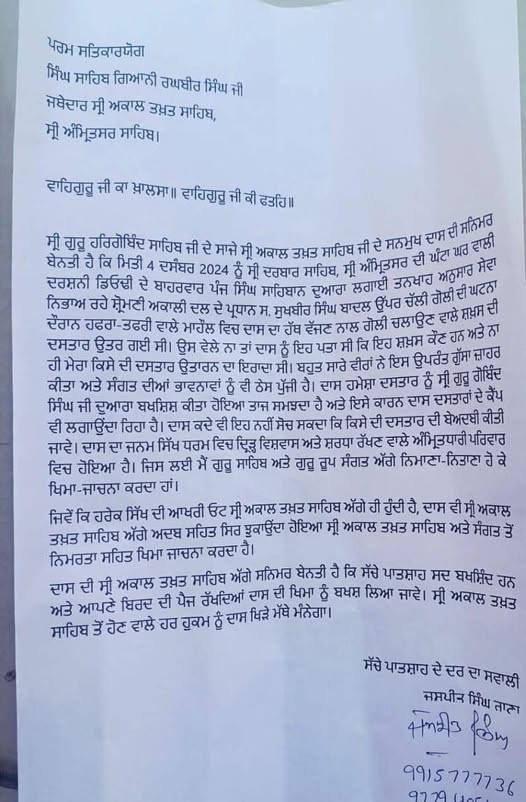 ਪਰਮ ਸਤਿਕਾਰਯੋਗ
ਸਿੰਘ ਸਾਹਿਬ ਗਿਆਨੀ ਰਘਬੀਰ ਸਿੰਘ ਜੀ
ਜਥੇਦਾਰ ਸ੍ਰੀ ਅਕਾਲ ਤਖ਼ਤ ਸਾਹਿਬ,
ਸ੍ਰੀ ਅੰਮ੍ਰਿਤਸਰ ਸਾਹਿਬ।
ਵਾਹਿਗੁਰੂ ਜੀ ਕਾ ਖ਼ਾਲਸਾ॥ ਵਾਹਿਗੁਰੂ ਜੀ ਕੀ ਫਤਹਿ॥
ਸ੍ਰੀ ਗੁਰੂ ਹਰਿਗੋਬਿੰਦ ਸਾਹਿਬ ਜੀ ਦੇ ਸਾਜੇ ਸ੍ਰੀ ਅਕਾਲ ਤਖ਼ਤ ਸਾਹਿਬ ਜੀ ਦੇ ਸਨਮੁਖ ਦਾਸ ਦੀ ਸਨਿਮਰ
ਬੇਨਤੀ ਹੈ ਕਿ ਮਿਤੀ 4 ਦਸੰਬਰ 2024 ਨੂੰ ਸ੍ਰੀ ਦਰਬਾਰ ਸਾਹਿਬ, ਸ੍ਰੀ ਅੰਮ੍ਰਿਤਸਰ ਦੀ ਘੰਟਾ ਘਰ ਵਾਲੀ
ਦਰਸ਼ਨੀ ਡਿਓਢੀ ਦੇ ਬਾਹਰਵਾਰ ਪੰਜ ਸਿੰਘ ਸਾਹਿਬਾਨ ਦੁਆਰਾ ਲਗਾਈ ਤਨਖਾਹ ਅਨੁਸਾਰ ਸੇਵਾ
ਨਿਭਾਅ ਰਹੇ ਸ਼੍ਰੋਮਣੀ ਅਕਾਲੀ ਦਲ ਦੇ ਪ੍ਰਧਾਨ ਸ. ਸੁਖਬੀਰ ਸਿੰਘ ਬਾਦਲ ਉੱਪਰ ਚੱਲੀ ਗੋਲੀ ਦੀ ਘਟਨਾ
ਦੌਰਾਨ ਹਫਰਾ-ਤਫਰੀ ਵਾਲੇ ਮਾਹੌਲ ਵਿਚ ਦਾਸ ਦਾ ਹੱਥ ਵੱਜਣ ਨਾਲ ਗੋਲੀ ਚਲਾਉਣ ਵਾਲੇ ਸ਼ਖ਼ਸ ਦੀ
ਦਸਤਾਰ ਉਤਰ ਗਈ ਸੀ। ਉਸ ਵੇਲੇ ਨਾ ਤਾਂ ਦਾਸ ਨੂੰ ਇਹ ਪਤਾ ਸੀ ਕਿ ਇਹ ਸ਼ਖ਼ਸ ਕੌਣ ਹਨ ਅਤੇ ਨਾ
ਹੀ ਮੇਰਾ ਕਿਸੇ ਦੀ ਦਸਤਾਰ ਉਤਾਰਨ ਦਾ ਇਰਾਦਾ ਸੀ। ਬਹੁਤ ਸਾਰੇ ਵੀਰਾਂ ਨੇ ਇਸ ਉਪਰੰਤ ਗੁੱਸਾ ਜ਼ਾਹਰ
ਕੀਤਾ ਅਤੇ ਸੰਗਤ ਦੀਆਂ ਭਾਵਨਾਵਾਂ ਨੂੰ ਵੀ ਠੇਸ ਪੁੱਜੀ ਹੈ। ਦਾਸ ਹਮੇਸ਼ਾ ਦਸਤਾਰ ਨੂੰ ਸ੍ਰੀ ਗੁਰੂ ਗੋਬਿੰਦ
ਸਿੰਘ ਜੀ ਦੁਆਰਾ ਬਖਸ਼ਿਸ਼ ਕੀਤਾ ਹੋਇਆ ਤਾਜ ਸਮਝਦਾ ਹੈ ਅਤੇ ਇਸੇ ਕਾਰਨ ਦਾਸ ਦਸਤਾਰਾਂ ਦੇ ਕੈਂਪ
ਵੀ ਲਗਾਉਂਦਾ ਰਿਹਾ ਹੈ। ਦਾਸ ਕਦੇ ਵੀ ਇਹ ਨਹੀਂ ਸੋਚ ਸਕਦਾ ਕਿ ਕਿਸੇ ਦੀ ਦਸਤਾਰ ਦੀ ਬੇਅਦਬੀ ਕੀਤੀ
ਜਾਵੇ। ਦਾਸ ਦਾ ਜਨਮ ਸਿੱਖ ਧਰਮ ਵਿਚ ਦ੍ਰਿੜ੍ਹ ਵਿਸ਼ਵਾਸ ਅਤੇ ਸ਼ਰਧਾ ਰੱਖਣ ਵਾਲੇ ਅੰਮ੍ਰਿਤਧਾਰੀ ਪਰਿਵਾਰ
ਵਿਚ ਹੋਇਆ ਹੈ। ਜਿਸ ਲਈ ਮੈਂ ਗੁਰੂ ਸਾਹਿਬ ਅਤੇ ਗੁਰੂ ਰੂਪ ਸੰਗਤ ਅੱਗੇ ਨਿਮਾਣਾ-ਨਿਤਾਣਾ ਹੋ ਕੇ
ਖਿਮਾ-ਜਾਚਨਾ ਕਰਦਾ ਹਾਂ।
ਜਿਵੇਂ ਕਿ ਹਰੇਕ ਸਿੱਖ ਦੀ ਆਖਰੀ ਓਟ ਸ੍ਰੀ ਅਕਾਲ ਤਖ਼ਤ ਸਾਹਿਬ ਅੱਗੇ ਹੀ ਹੁੰਦੀ ਹੈ, ਦਾਸ ਵੀ ਸ੍ਰੀ ਅਕਾਲ
ਤਖ਼ਤ ਸਾਹਿਬ ਅੱਗੇ ਅਦਬ ਸਹਿਤ ਸਿਰ ਝੁਕਾਉਂਦਾ ਹੋਇਆ ਸ੍ਰੀ ਅਕਾਲ ਤਖ਼ਤ ਸਾਹਿਬ ਅਤੇ ਸੰਗਤ ਤੋਂ
ਨਿਮਰਤਾ ਸਹਿਤ ਖਿਮਾ ਜਾਚਨਾ ਕਰਦਾ ਹੈ।
ਦਾਸ ਦੀ ਸ੍ਰੀ ਅਕਾਲ ਤਖ਼ਤ ਸਾਹਿਬ ਅੱਗੇ ਸਨਿਮਰ ਬੇਨਤੀ ਹੈ ਕਿ ਸੱਚੇ ਪਾਤਸ਼ਾਹ ਸਦ ਬਖਸ਼ਿੰਦ ਹਨ
ਅਤੇ ਆਪਣੇ ਬਿਰਦ ਦੀ ਪੈਜ ਰੱਖਦਿਆਂ ਦਾਸ ਦੀ ਖਿਮਾ ਨੂੰ ਬਖਸ਼ ਲਿਆ ਜਾਵੇ। ਸ੍ਰੀ ਅਕਾਲ ਤਖ਼ਤ
ਸਾਹਿਬ ਤੋਂ ਹੋਣ ਵਾਲੇ ਹਰ ਹੁਕਮ ਨੂੰ ਦਾਸ ਖਿੜੇ ਮੱਥੇ ਮੰਨੇਗਾ।
ਸੱਚੇ ਪਾਤਸ਼ਾਹ ਦੇ ਦਰ ਦਾ ਸਵਾਲੀ
ਜਸਪ੍ਰੀਤ ਸਿੰਘ ਰਾਣਾ
ਜਸਪ੍ਰੀਤ ਸਿੰਘ
9915777736